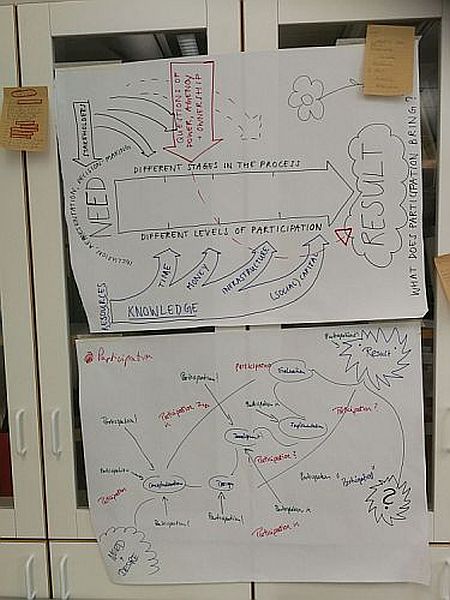 STAKEHOLDERS
QUESTIONS OF
POWER, AGENCY
+ OWNERSHIP
INCLUSION, REPRESENTATION, DECISION MAKING
NEED
DIFFERENT STAGES IN THE PROCESS
DIFFERENT LEVELS OF PARTICIPATION
RESULT
WHAT DOES PARTICIPATION BRING?
RESOURCES
KNOWLEDGE
TIME
MONEY
INFRASTRUCTURE
(SOCIAL) CAPITAL
Participation
Participation!
Result
Participation!
Participation
Evaluation
Participation!
Participation
Participation
Implementation
Participation?
Development
Participation?
Participation
Participation
Conceptualisation
Design
Participation
"Participation"
?
Participation!
Participation!
Participation
Participation
NEED
DESIRE